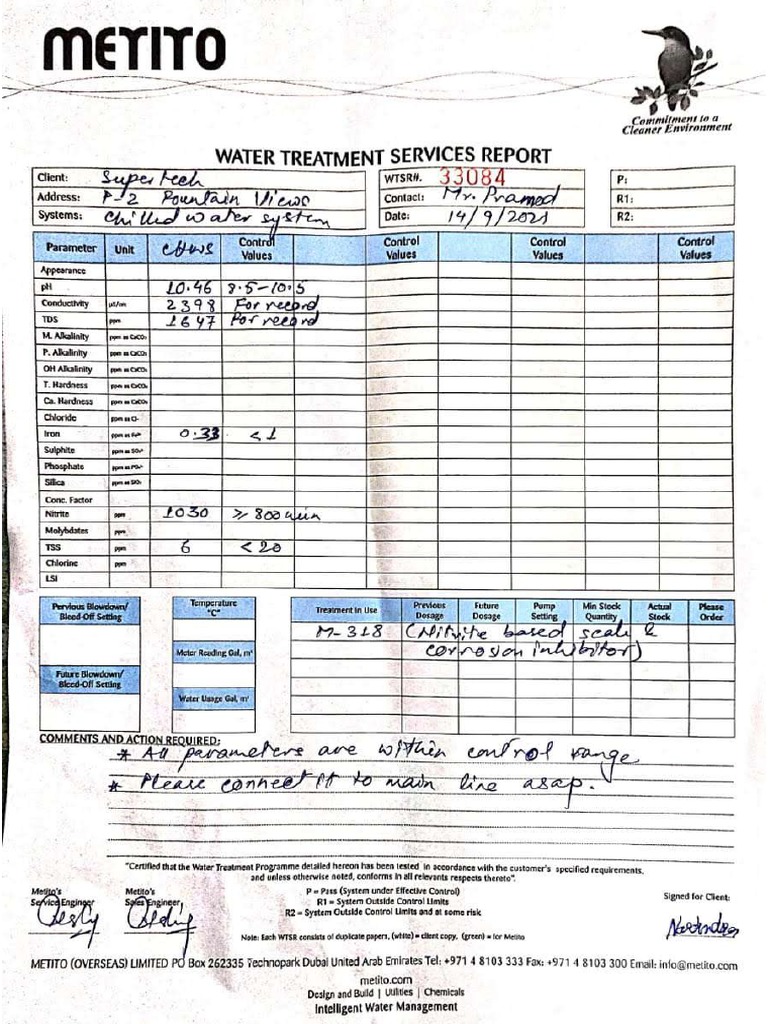 METITO
Commitment to a
Cleaner Environment
WATER TREATMENT SERVICES REPORT
Client: Supertech
Address: P-2 Fountain Views
Systems: Chilled water system
WTSR#. 33084
Contact: Mr. Pramod
Date: 14/9/2021
P:
R1:
R2:
Parameter Unit CHWS Control Values Control Values Control Values Control Values
Appearance
pH 10.46 8.5-10.5
Conductivity µS/cm 2398 For record
TDS ppm 1647 For record
M. Alkalinity ppm as CaCO₃
P. Alkalinity ppm as CaCO₃
OH Alkalinity ppm as CaCO₃
T. Hardness ppm as CaCO₃
Ca. Hardness ppm as CaCO₃
Chloride ppm as Cl-
Iron ppm as Fe 0.33 <1
Sulphite ppm as SO₃
Phosphate ppm as PO₄
Silica ppm as SiO₂
Conc. Factor
Nitrite ppm 1030 ≥ 800 min
Molybdates ppm
TSS ppm 6 < 20
Chlorine ppm
LSI
Pervious Blowdown/
Bleed-Off Setting
Future Blowdown/
Bleed-Off Setting
Temperature
"C"
Meter Reading Gal, m³
Water Usage Gal, m³
Treatment in Use Previous Dosage Future Dosage Pump Setting Min Stock Quantity Actual Stock Please Order
M-318 (Nitrite based scale &
corrosion inhibitor)
COMMENTS AND ACTION REQUIRED:
* All parameters are within control range
* Please connect it to main line asap.
"Certified that the Water Treatment Programme detailed hereon has been tested in accordance with the customer's specified requirements,
and unless otherwise noted, conforms in all relevant respects thereto".
Metito's
Service Engineer
Metito's
Sales Engineer
P = Pass (System under Effective Control)
R1 = System Outside Control Limits
R2 = System Outside Control Limits and at some risk
Signed for Client:
Note: Each WTSR consists of duplicate papers, (white) = client copy, (green) = for Metito
METITO (OVERSEAS) LIMITED PO Box 262335 Technopark Dubai United Arab Emirates Tel: +971 4 8103 333 Fax: +971 4 8103 300 Email: info@metito.com
metito.com
Design and Build | Utilities | Chemicals
Intelligent Water Management